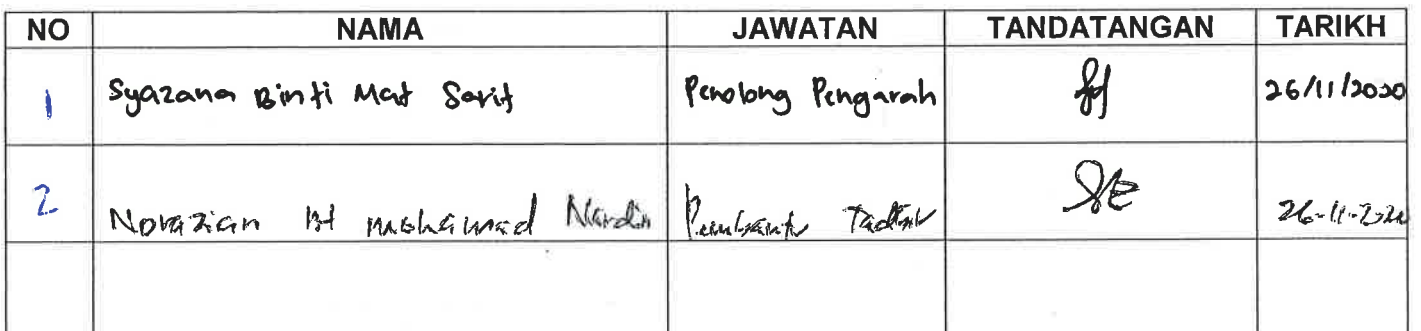 NO NAMA JAWATAN TANDATANGAN TARIKH
1 Syazana Binti Mat Sarit Penolong Pengarah 26/11/2020
2 Norazian Bt Mohamad Nordin Pembantu Tadbir 26-11-2020